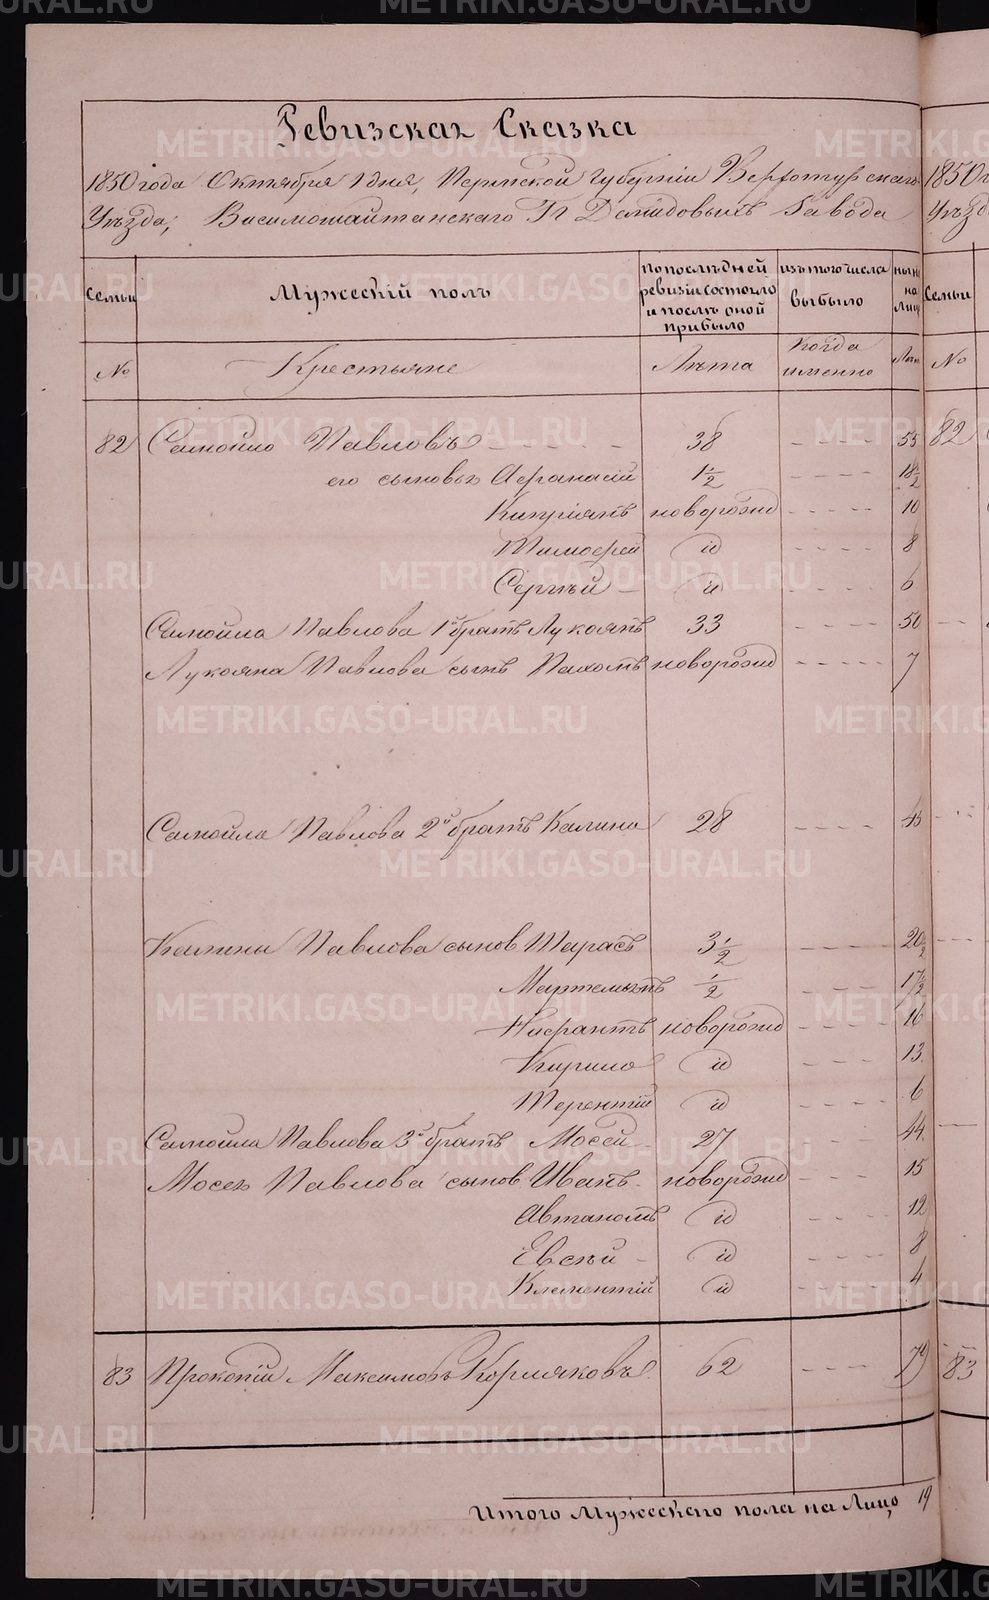 Ревизская Сказка
1850 года Октября 1 дня, Пермской Губерніи Верхотурскаго
Уѣзда, Висимошайтанскаго Гг Демидовыхъ Завода
Семьи
Мужескій полъ
по послѣдней ревизіи состояло и послѣ оной прибыло
изъ того числа выбыло
нынѣ на лицо
№
Крестьяне
Лѣта
когда именно
Лѣта
82 Самойло Павловъ - - - - 38 - - - - 55
его сыновья Афанасій 1½ - - - - 18½
Кипріянъ новорожд - - - - 10
Тимофей id - - - - 8
Сергѣй id - - - - 6
Самойла Павлова 1й братъ Лукоянъ 33 - - - - 50
Лукояна Павлова сынъ Пахомъ новорожд - - - - 7
Самойла Павлова 2й братъ Калина 28 - - - - 45
Калины Павлова сынов Тарасъ 3½ - - - - 20½
Мартемьянъ ½ - - - - 17½
Нифантъ новорожд - - - - 16
Кирило id - - - - 13
Терентій id - - - - 6
Самойла Павлова 3й братъ Мосей 27 - - - - 44
Мосея Павлова сынов Иванъ новорожд - - - - 15
Автаномъ id - - - - 12
Евсѣй id - - - - 8
Климентій id - - - - 4
83 Прокопій Максимовъ Корляковъ 62 - - - - 79
Итого Мужескаго пола на Лицо 19
1850
Уѣзд
Семьи
№
82
83
METRIKI.GASO-URAL.RU